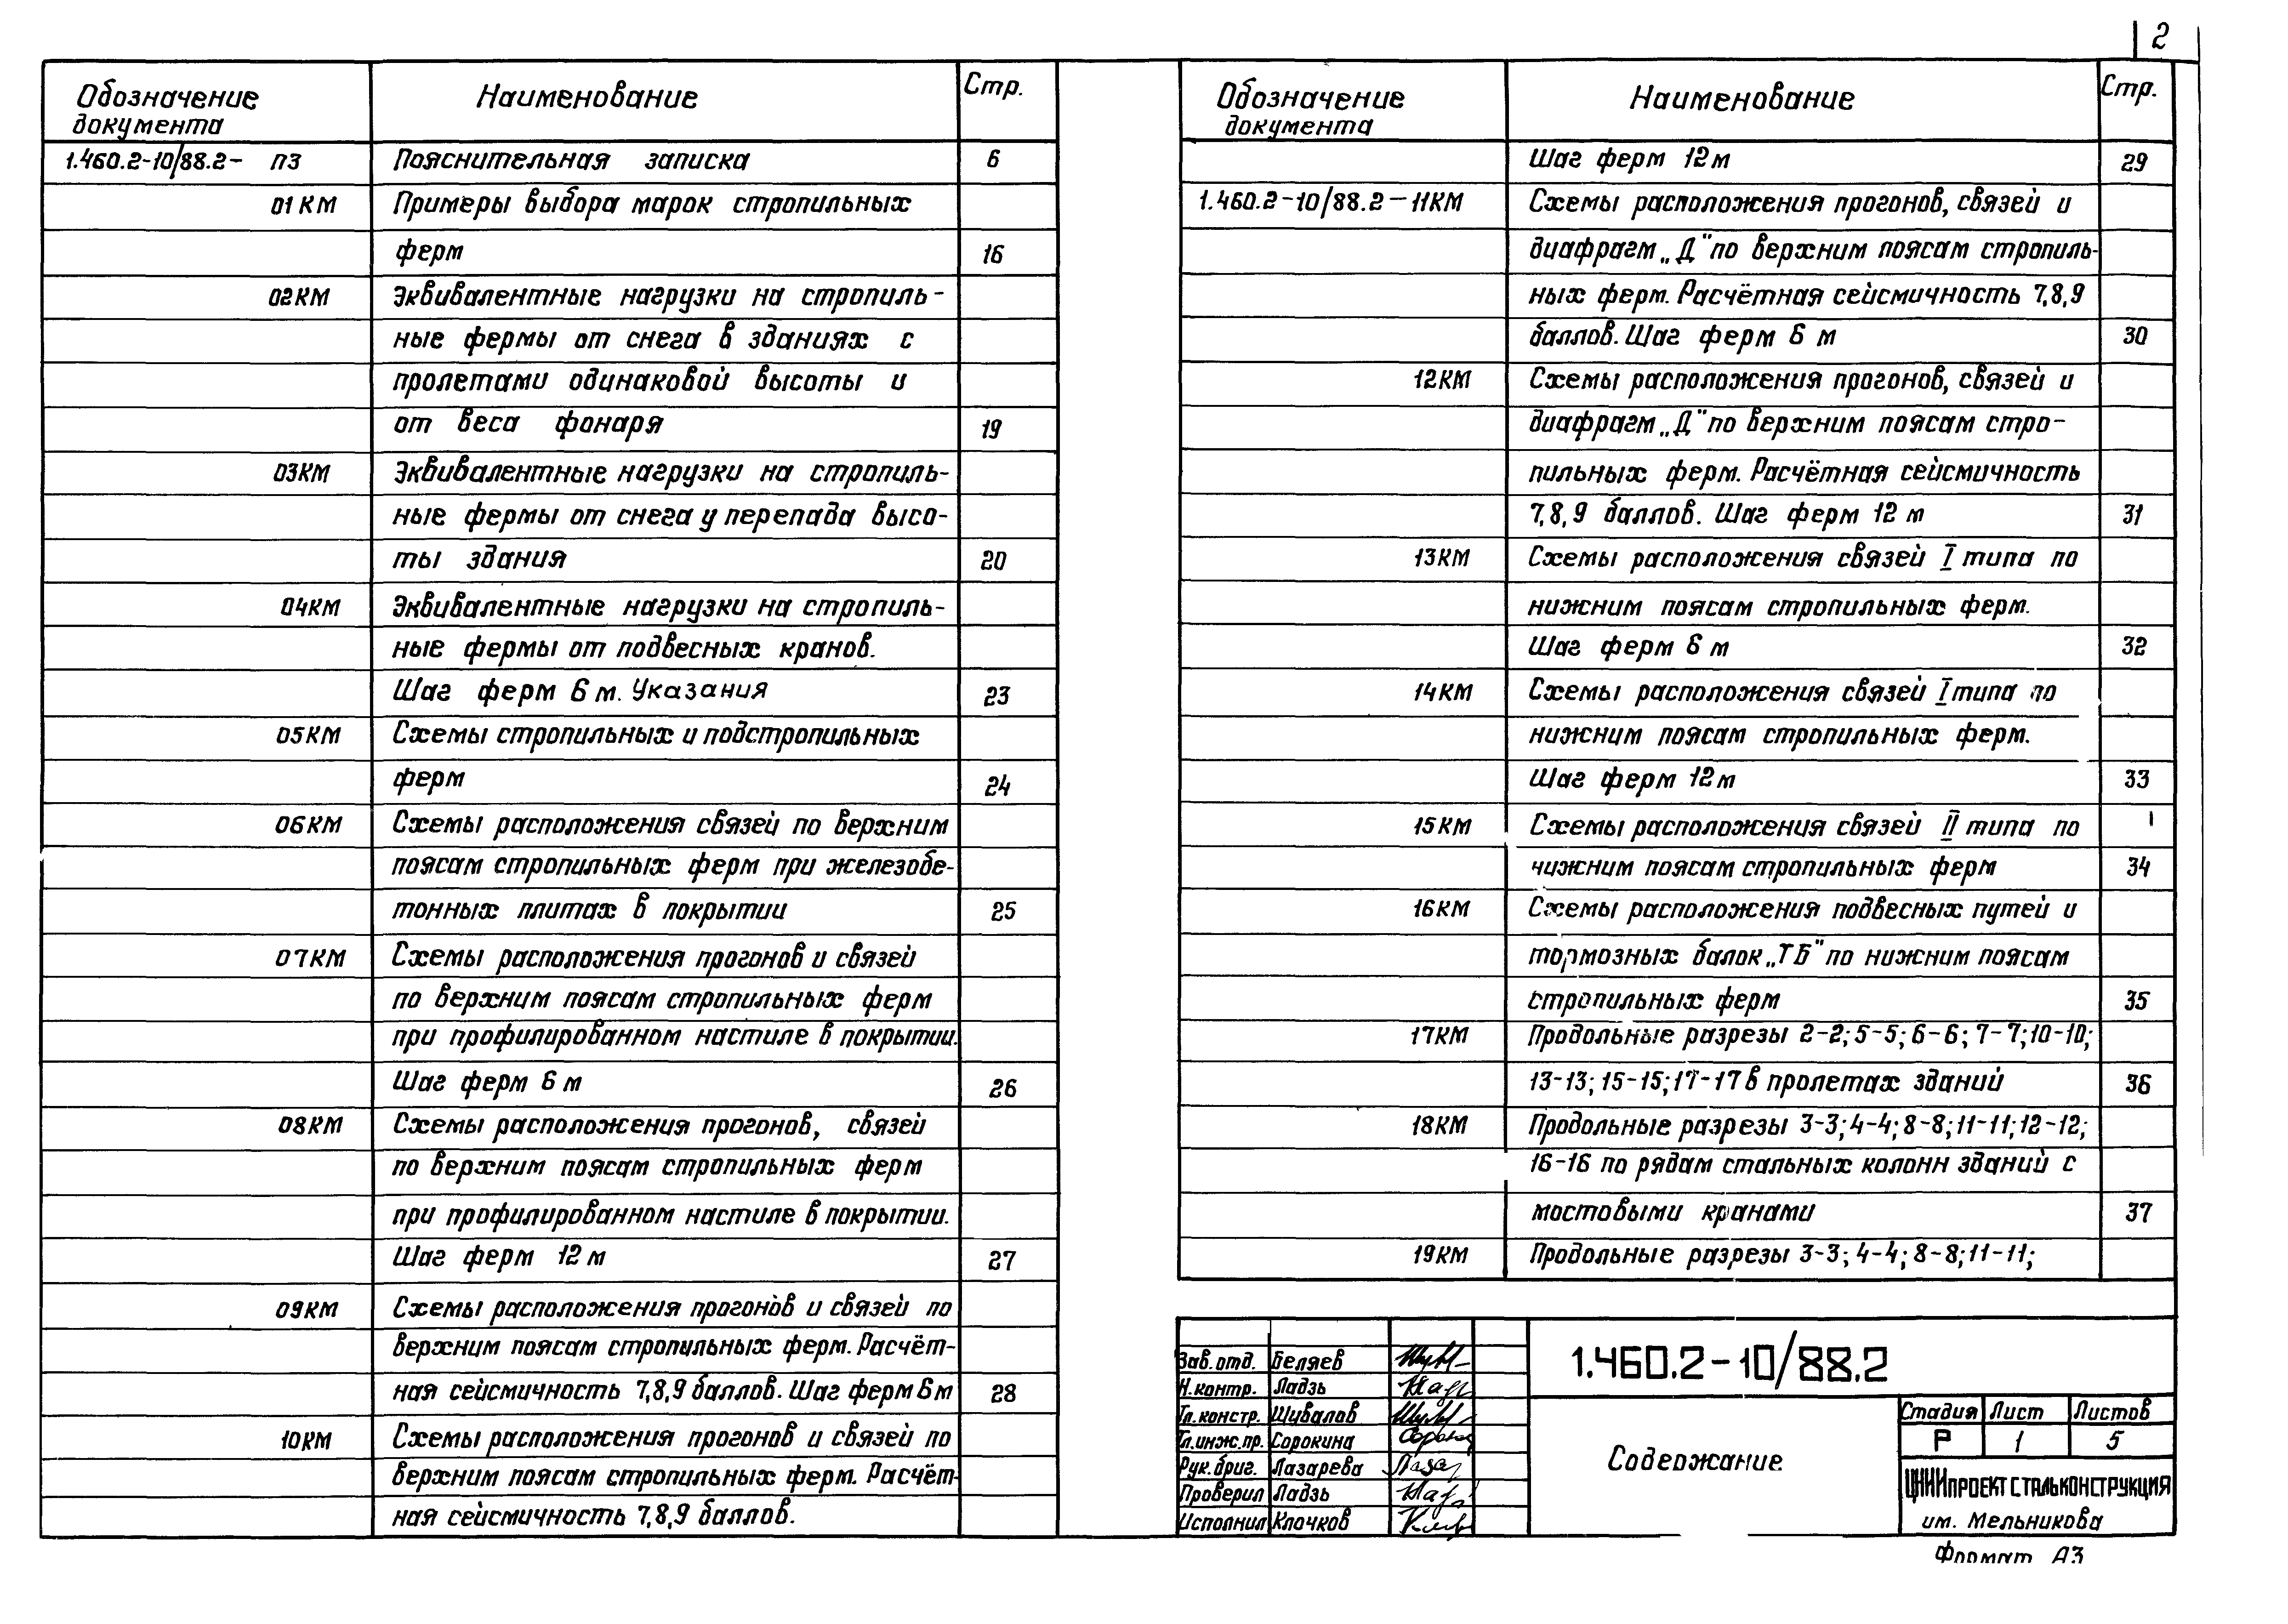 2
Обозначение документа Наименование Стр.
1.460.2-10/88.2- ПЗ Пояснительная записка 6
01КМ Примеры выбора марок стропильных
ферм 16
02КМ Эквивалентные нагрузки на стропиль-
ные фермы от снега в зданиях с
пролетами одинаковой высоты и
от веса фонаря 19
03КМ Эквивалентные нагрузки на стропиль-
ные фермы от снега у перепада высо-
ты здания 20
04КМ Эквивалентные нагрузки на стропиль-
ные фермы от подвесных кранов.
Шаг ферм 6 м. Указания 23
05КМ Схемы стропильных и подстропильных
ферм 24
06КМ Схемы расположения связей по верхним
поясам стропильных ферм при железобе-
тонных плитах в покрытии 25
07КМ Схемы расположения прогонов и связей
по верхним поясам стропильных ферм
при профилированном настиле в покрытии.
Шаг ферм 6 м 26
08КМ Схемы расположения прогонов, связей
по верхним поясам стропильных ферм
при профилированном настиле в покрытии.
Шаг ферм 12 м 27
09КМ Схемы расположения прогонов и связей по
верхним поясам стропильных ферм. Расчёт-
ная сейсмичность 7,8,9 баллов. Шаг ферм 6 м 28
10КМ Схемы расположения прогонов и связей по
верхним поясам стропильных ферм. Расчёт-
ная сейсмичность 7,8,9 баллов.
Обозначение документа Наименование Стр.
Шаг ферм 12 м 29
1.460.2-10/88.2-11КМ Схемы расположения прогонов, связей и
диафрагм „Д" по верхним поясам стропиль-
ных ферм. Расчётная сейсмичность 7,8,9
баллов. Шаг ферм 6 м 30
12КМ Схемы расположения прогонов, связей и
диафрагм „Д" по верхним поясам стро-
пильных ферм. Расчётная сейсмичность
7,8,9 баллов. Шаг ферм 12 м 31
13КМ Схемы расположения связей I типа по
нижним поясам стропильных ферм.
Шаг ферм 6 м 32
14КМ Схемы расположения связей I типа по
нижним поясам стропильных ферм.
Шаг ферм 12 м 33
15КМ Схемы расположения связей II типа по
нижним поясам стропильных ферм 34
16КМ Схемы расположения подвесных путей и
тормозных балок „ТБ" по нижним поясам
стропильных ферм 35
17КМ Продольные разрезы 2-2; 5-5; 6-6; 7-7; 10-10;
13-13; 15-15; 17-17 в пролетах зданий 36
18КМ Продольные разрезы 3-3; 4-4; 8-8; 11-11; 12-12;
16-16 по рядам стальных колонн зданий с
мостовыми кранами 37
19КМ Продольные разрезы 3-3; 4-4; 8-8; 11-11;
Зав. отд. Беляев
Н.контр. Ладзь
Гл.констр. Шувалов
Гл.инж.пр. Сорокина
Рук.бриг. Лазарева
Проверил Ладзь
Исполнил Клочков
1.460.2-10/88.2
Содержание
Стадия Лист Листов
Р 1 5
ЦНИИПРОЕКТСТАЛЬКОНСТРУКЦИЯ
им. Мельникова
Формат А3